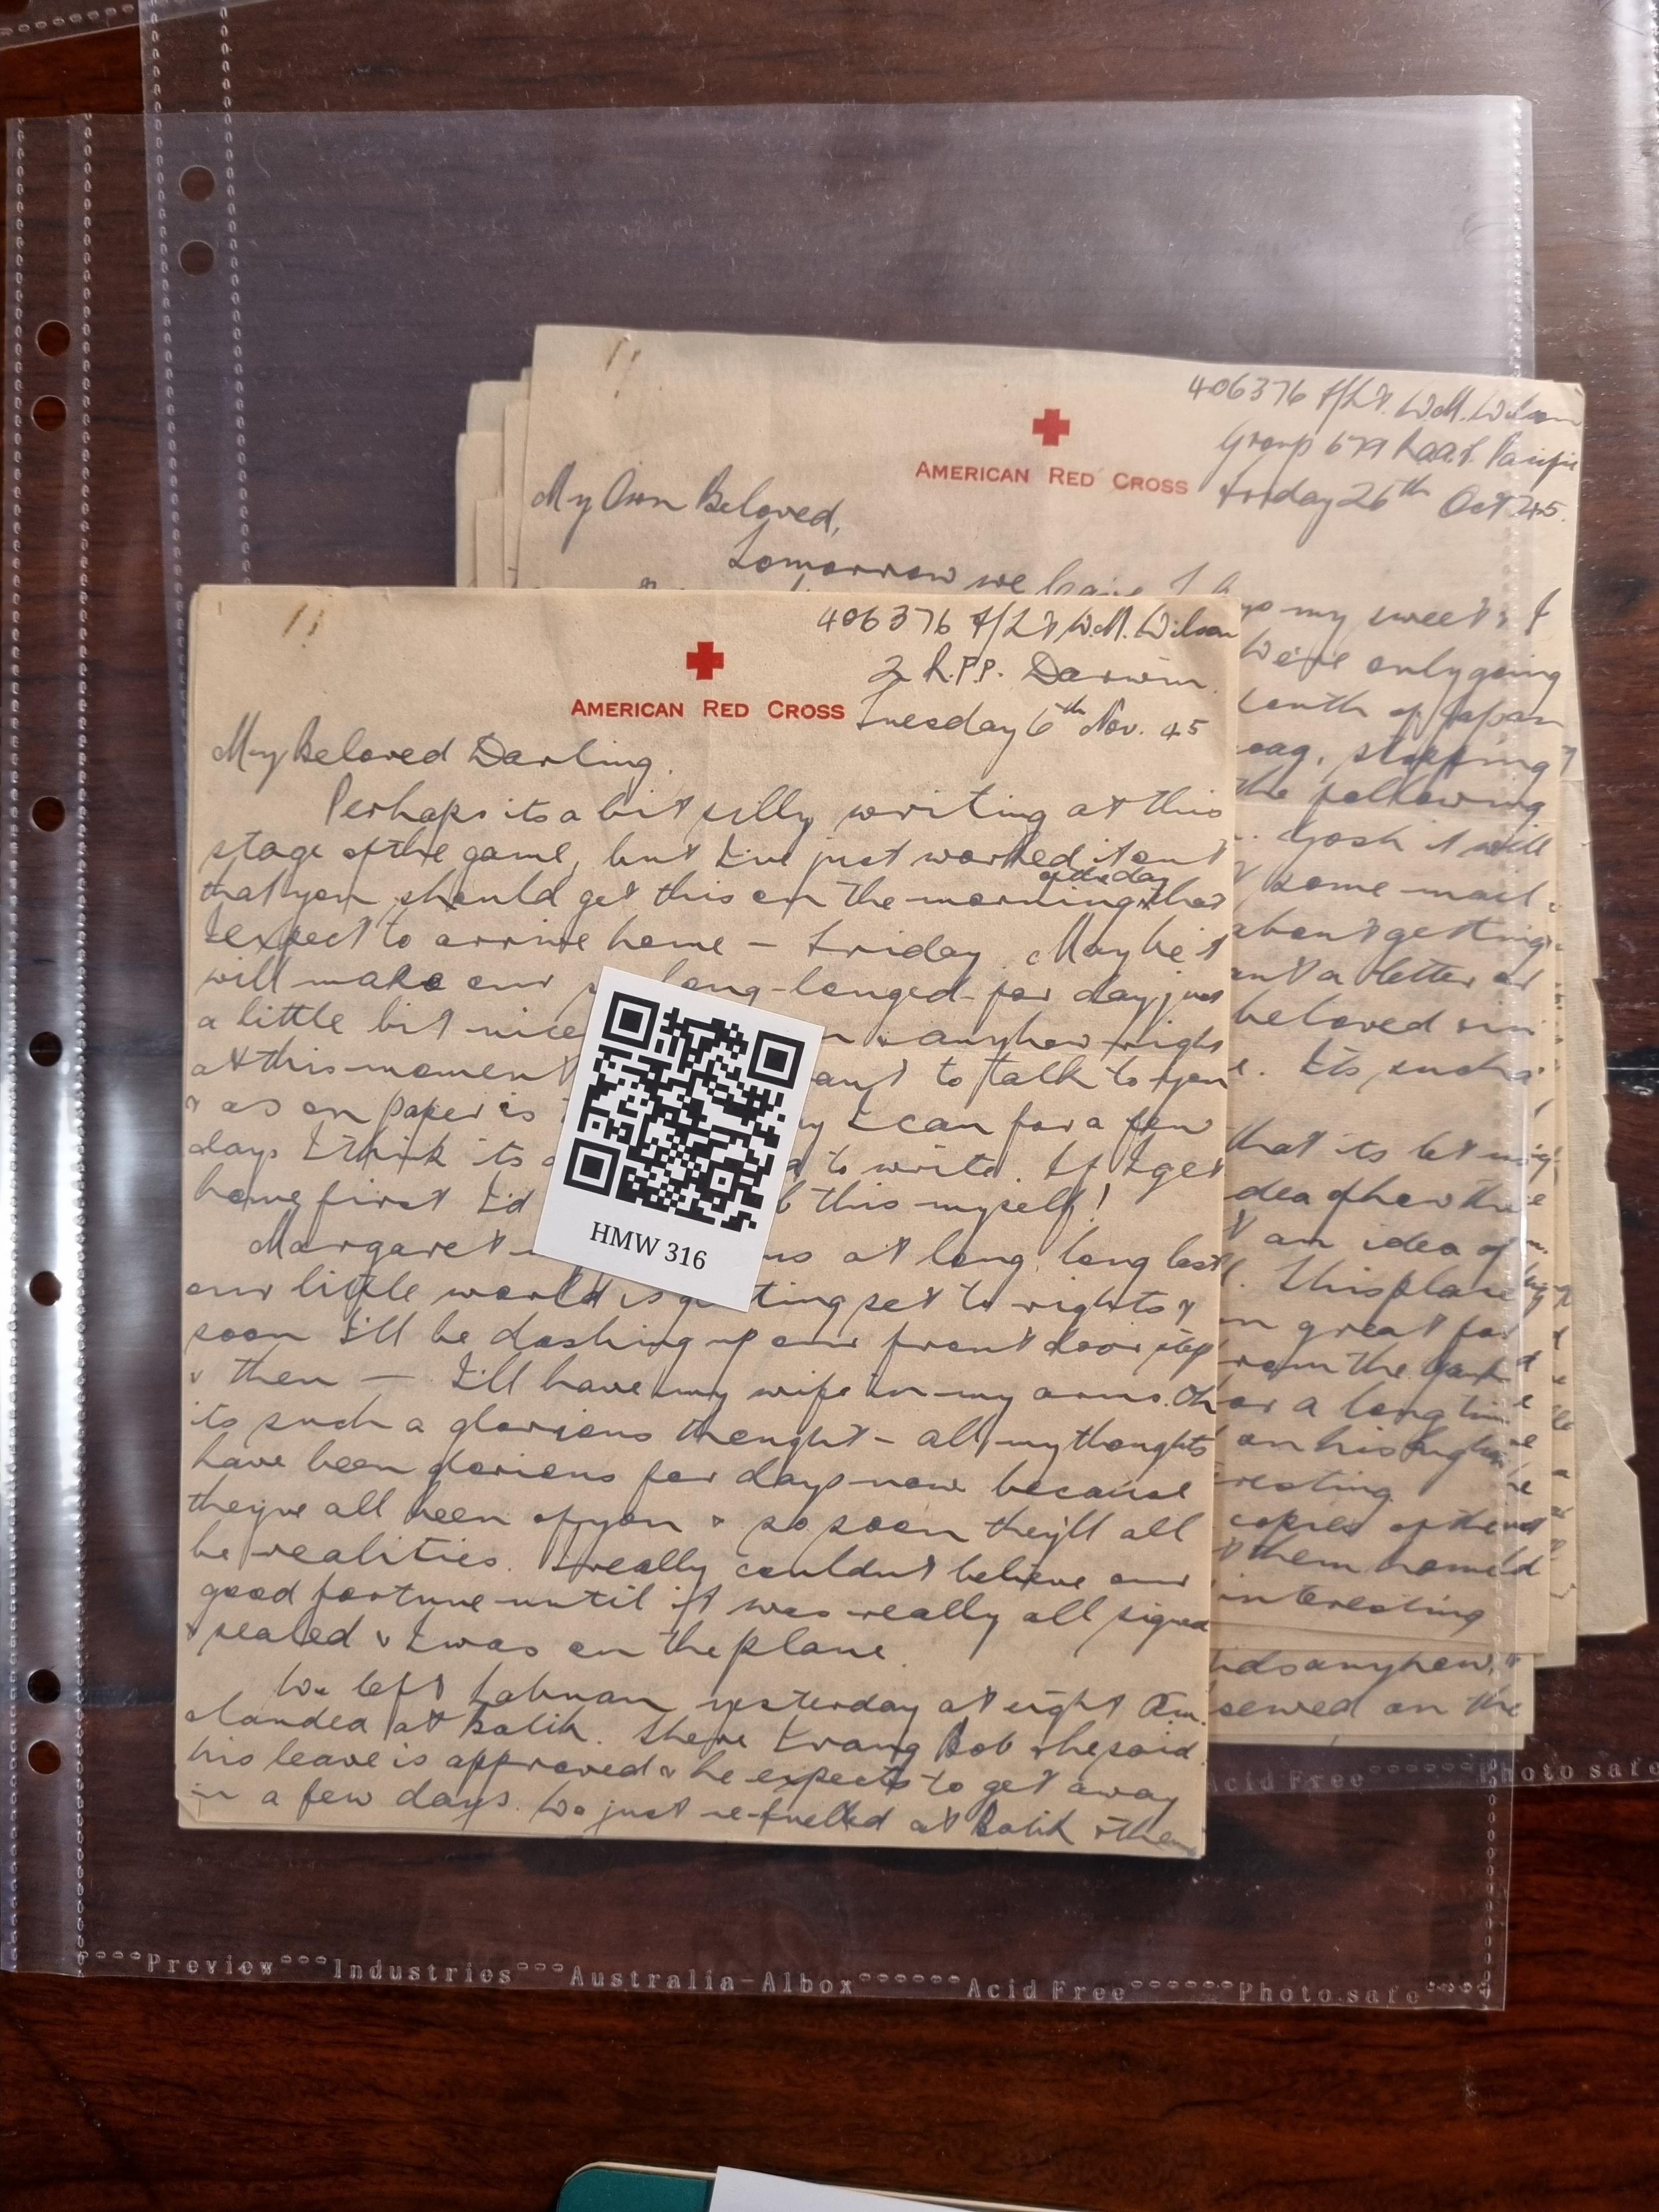 406376 F/Lt. W.M. Wilson
Group 679 R.A.A.F. Pacific
AMERICAN RED CROSS
Friday 26th Oct 45.
My Own Beloved,
Tomorrow we leave
my sweet & I
We're only going
south of Japan
stopping
the following
Gosh it will
some mail.
about getting
a letter or
beloved
Its such
that its
idea of how the
an idea of
This place
great for
from the
for a long time
on his
resting
copies of
them
interesting
anyhow,
sewed on the
406376 F/Lt W.M. Wilson
2 R.P.P. Darwin.
AMERICAN RED CROSS
Tuesday 6th Nov. 45
My Beloved Darling.
Perhaps its a bit silly writing at this
stage of the game, but I've just worked it out
of the day
that you should get this on the morning that
I expect to arrive home – Friday. Maybe it
will make our long-longed-for day just
a little bit nice & anyhow right
at this moment to talk to you
& as on paper is I can for a few
days I think its to write. If I get
home first I'd this myself!
Margaret at long, long last
our little world is getting set to rights &
soon I'll be dashing up our front door step
& then — I'll have my wife in my arms. Oh
its such a glorious thought – all my thoughts
have been glorious for days now because
they've all been of you & so soon they'll all
be realities. I really couldn't believe our
good fortune until it was really all signed
& sealed & I was on the plane.
We left Labuan yesterday at eight a.m.
& landed at Balik. There I rang Bob & he said
his leave is approved & he expects to get away
in a few days. We just re-fuelled at Balik & then
HMW 316
Acid Free Photo safe
Preview Industries Australia-Albox Acid Free Photo safe